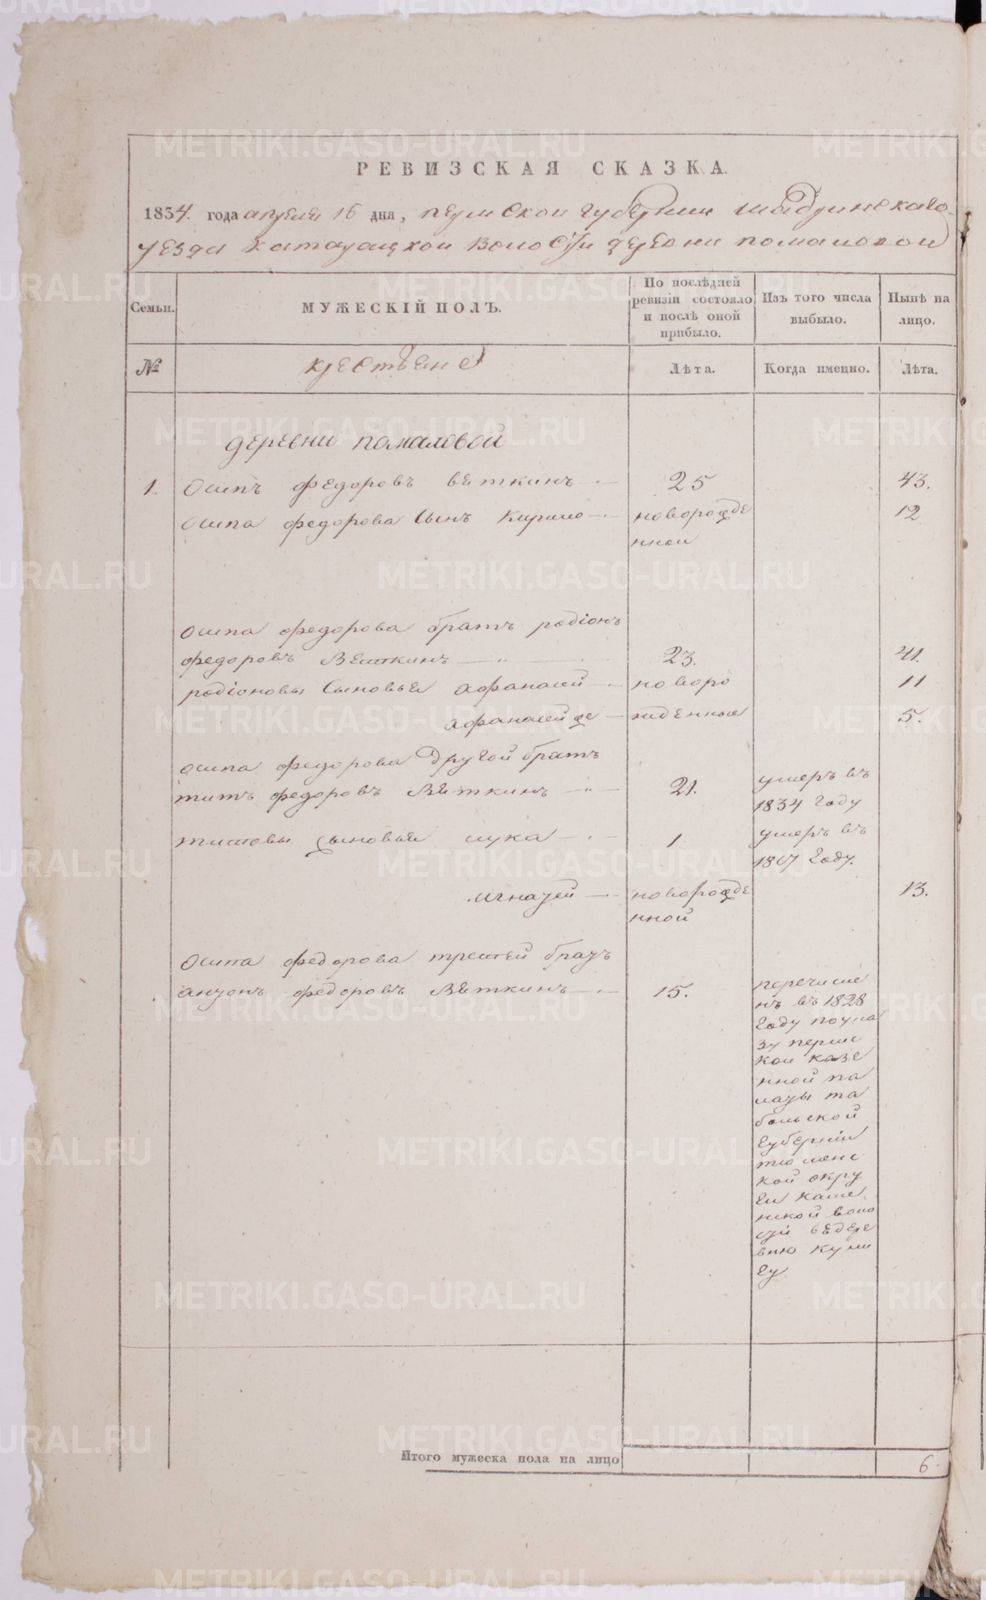 РЕВИЗСКАЯ СКАЗКА.
1834. года апреля 16 дня, пермской губернии шадринскаго
уезда катайской волости деревни
Семьи.
МУЖЕСКІЙ ПОЛЪ.
По послѣдней
ревизіи состояло
и послѣ оной
прибыло.
Изъ того числа
выбыло.
Нынѣ на
лицо.
№
Лѣта.
Когда именно.
Лѣта.
деревни
1. Осипъ федоровъ вяткинъ 25 43.
Осипа федорова сынъ новорожде 12
нной
Осипа федорова братъ родіонъ
федоровъ Вяткинъ 23. 41.
родіоновы сыновья афанасей новоро 11
жденные 5.
Осипа федорова другой братъ
титъ федоровъ Вяткинъ 21. умеръ въ
1834 году
титовы сыновья лука 1 умеръ въ
году.
игнатей новорожде 13.
нной
Осипа федорова третей братъ
антонъ федоровъ Вяткинъ 15. перечисле
нъ въ 1828
году поука
зу пермс
кой казе
нной па
латы та
больской
губерніи
тюменс
кой окру
ги
нской воло
сти вдере
вню
гу
Итого мужеска пола на лицо 6.
METRIKI.GASO-URAL.RU